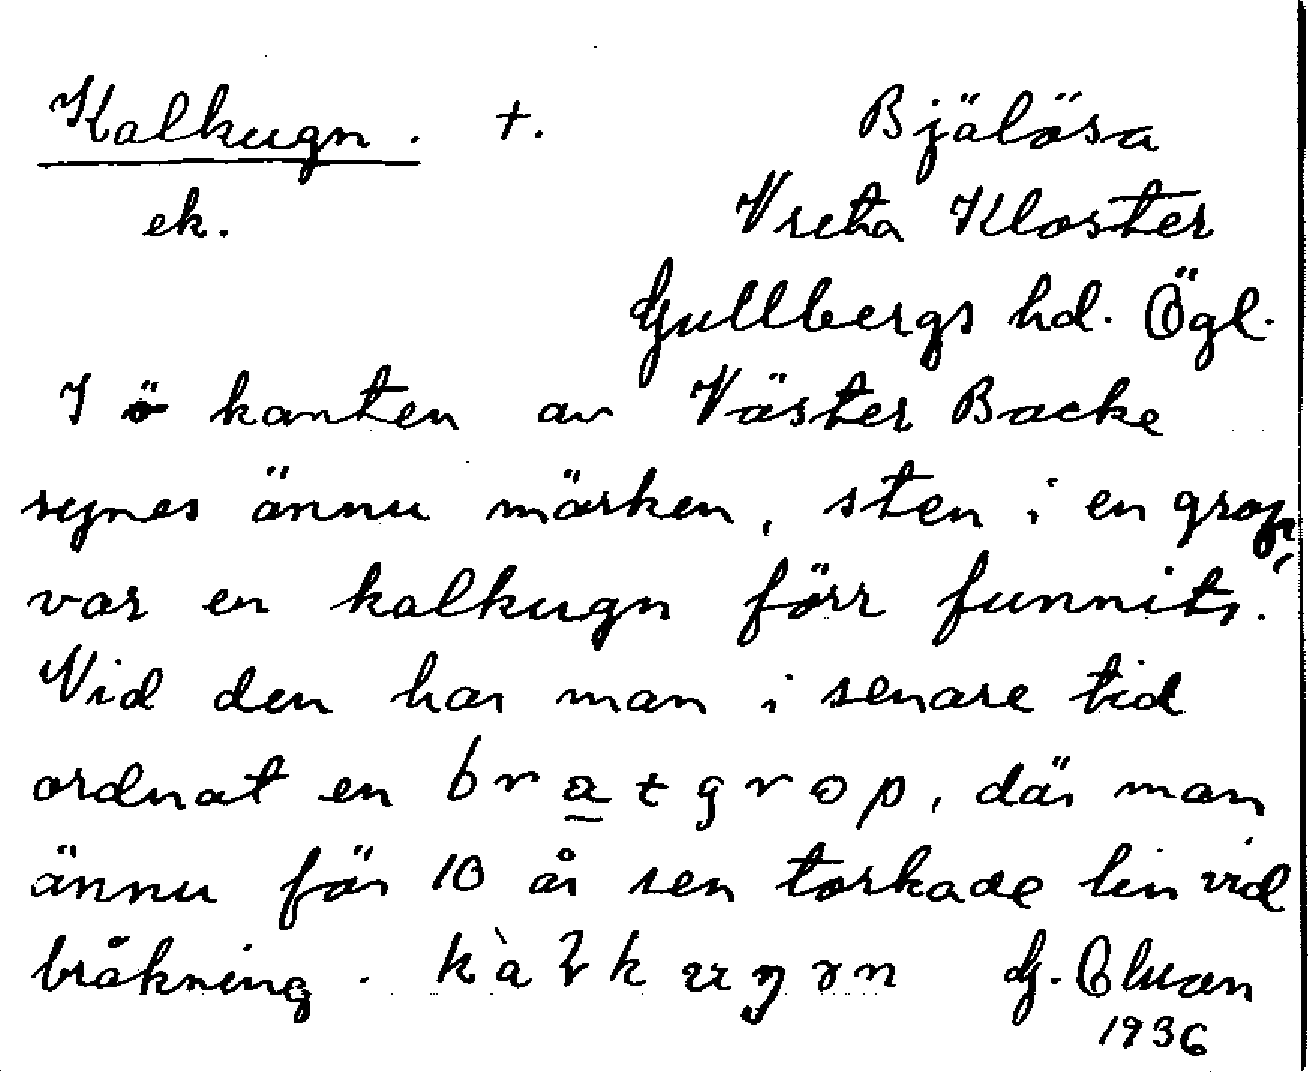 Kalkugn. +. Bjälösa
ek. Vreta Kloster
Gullbergs hd. Ögl.
I ö kanten av Väster Backe
synes ännu märken, sten i en grop,
var en kalkugn förr funnits.
Vid den har man i senare tid
ordnat en bratgrop, där man
ännu för 10 år sen torkade lin vid
bråkning. G.
1936